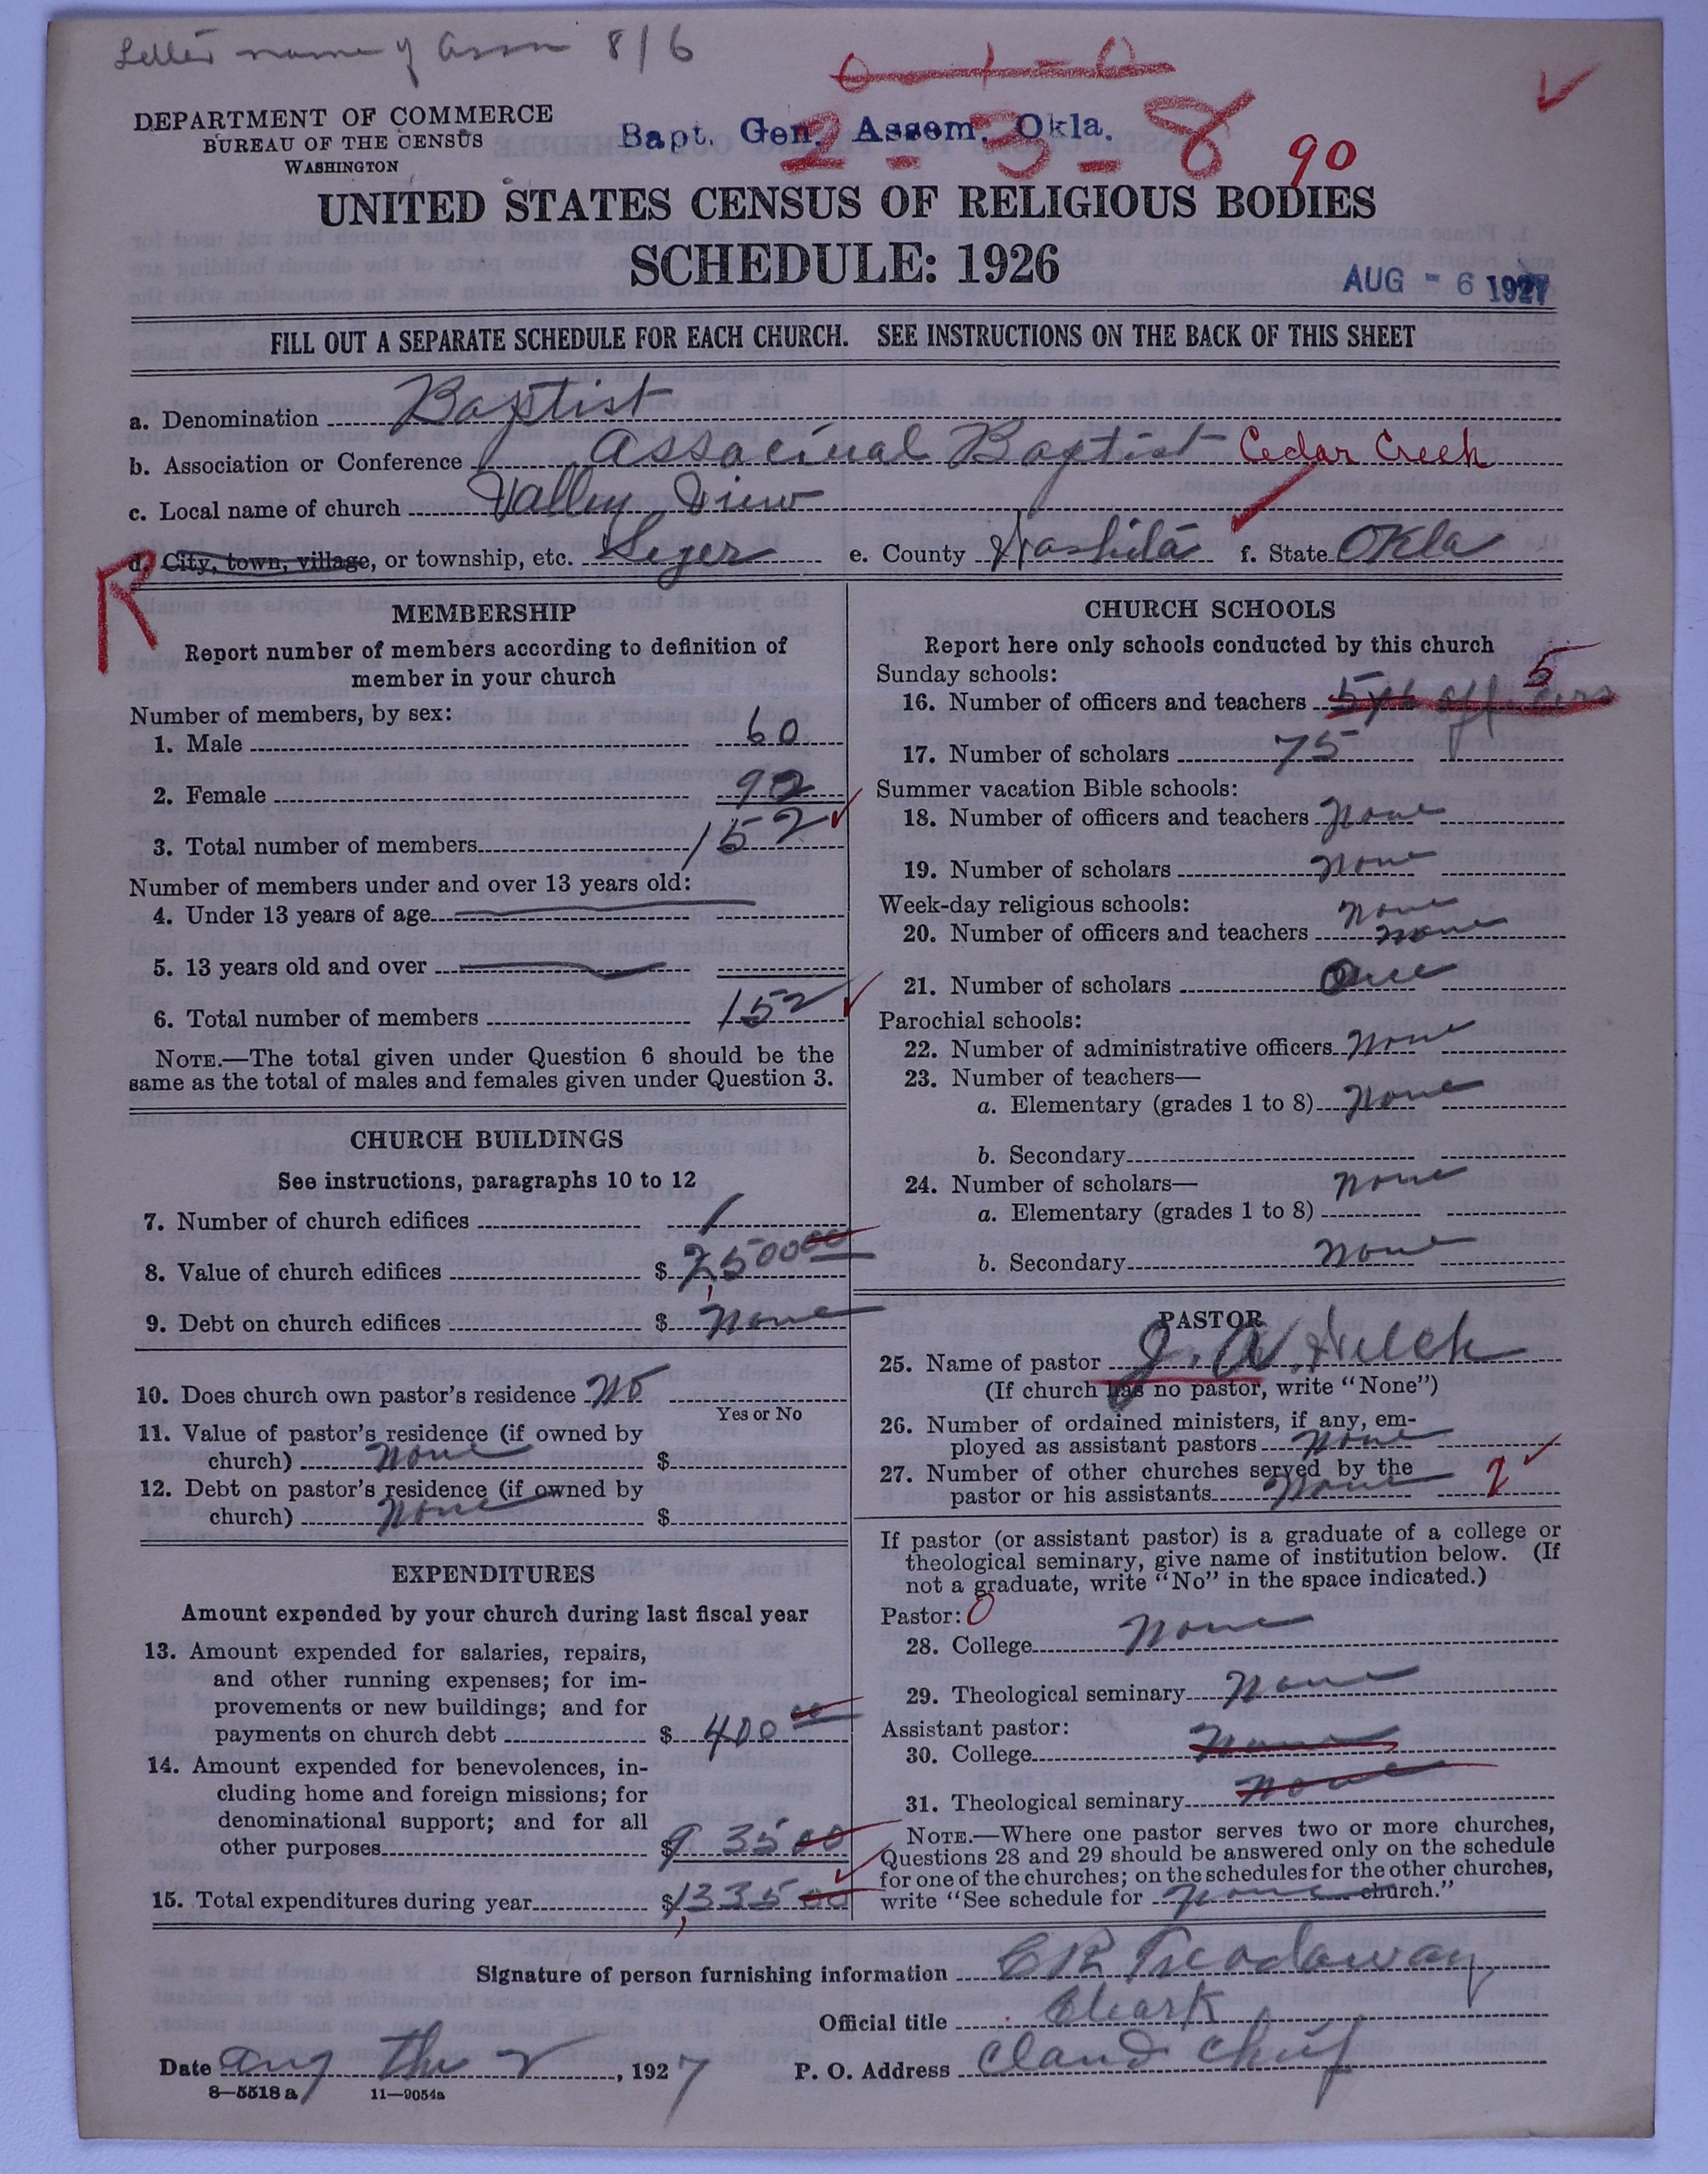 Letter name of Assn 8/6
0-1-0
DEPARTMENT OF COMMERCE
BUREAU OF THE CENSUS
WASHINGTON
Bapt. Gen. Assem. Okla.
2-3-8 90
UNITED STATES CENSUS OF RELIGIOUS BODIES
SCHEDULE: 1926
AUG - 6 1927
FILL OUT A SEPARATE SCHEDULE FOR EACH CHURCH. SEE INSTRUCTIONS ON THE BACK OF THIS SHEET
a. Denomination Baptist
b. Association or Conference Baptist Cedar Creek
c. Local name of church Valley View
R
d. City, town, village, or township, etc. Seger e. County Washita f. State Okla
MEMBERSHIP
Report number of members according to definition of
member in your church
Number of members, by sex:
1. Male 60
2. Female 92
3. Total number of members 152
Number of members under and over 13 years old:
4. Under 13 years of age
5. 13 years old and over
6. Total number of members 152
NOTE.—The total given under Question 6 should be the
same as the total of males and females given under Question 3.
CHURCH BUILDINGS
See instructions, paragraphs 10 to 12
7. Number of church edifices 1
8. Value of church edifices $ 2,500 00
9. Debt on church edifices $ None
10. Does church own pastor's residence No
Yes or No
11. Value of pastor's residence (if owned by
church) None $
12. Debt on pastor's residence (if owned by
church) None $
EXPENDITURES
Amount expended by your church during last fiscal year
13. Amount expended for salaries, repairs,
and other running expenses; for im-
provements or new buildings; and for
payments on church debt $ 400 00
14. Amount expended for benevolences, in-
cluding home and foreign missions; for
denominational support; and for all
other purposes $ 935 00
15. Total expenditures during year $ 1,335 00
CHURCH SCHOOLS
Report here only schools conducted by this church
Sunday schools:
16. Number of officers and teachers 5 officers 5
17. Number of scholars 75
Summer vacation Bible schools:
18. Number of officers and teachers None
19. Number of scholars None
Week-day religious schools:
None
20. Number of officers and teachers None
21. Number of scholars
Parochial schools:
22. Number of administrative officers None
23. Number of teachers—
a. Elementary (grades 1 to 8) None
b. Secondary
24. Number of scholars— None
a. Elementary (grades 1 to 8)
b. Secondary None
PASTOR
25. Name of pastor J. A.
(If church has no pastor, write "None")
26. Number of ordained ministers, if any, em-
ployed as assistant pastors None
27. Number of other churches served by the
pastor or his assistants None 2
If pastor (or assistant pastor) is a graduate of a college or
theological seminary, give name of institution below. (If
not a graduate, write "No" in the space indicated.)
Pastor: 0
28. College None
29. Theological seminary None
Assistant pastor:
30. College None
31. Theological seminary None
NOTE.—Where one pastor serves two or more churches,
Questions 28 and 29 should be answered only on the schedule
for one of the churches; on the schedules for the other churches,
write "See schedule for None church."
Signature of person furnishing information C R Treadaway
Official title Cleark
Date Aug the 2, 1927 P. O. Address Cloud Chief
8—5518 a 11—9054a